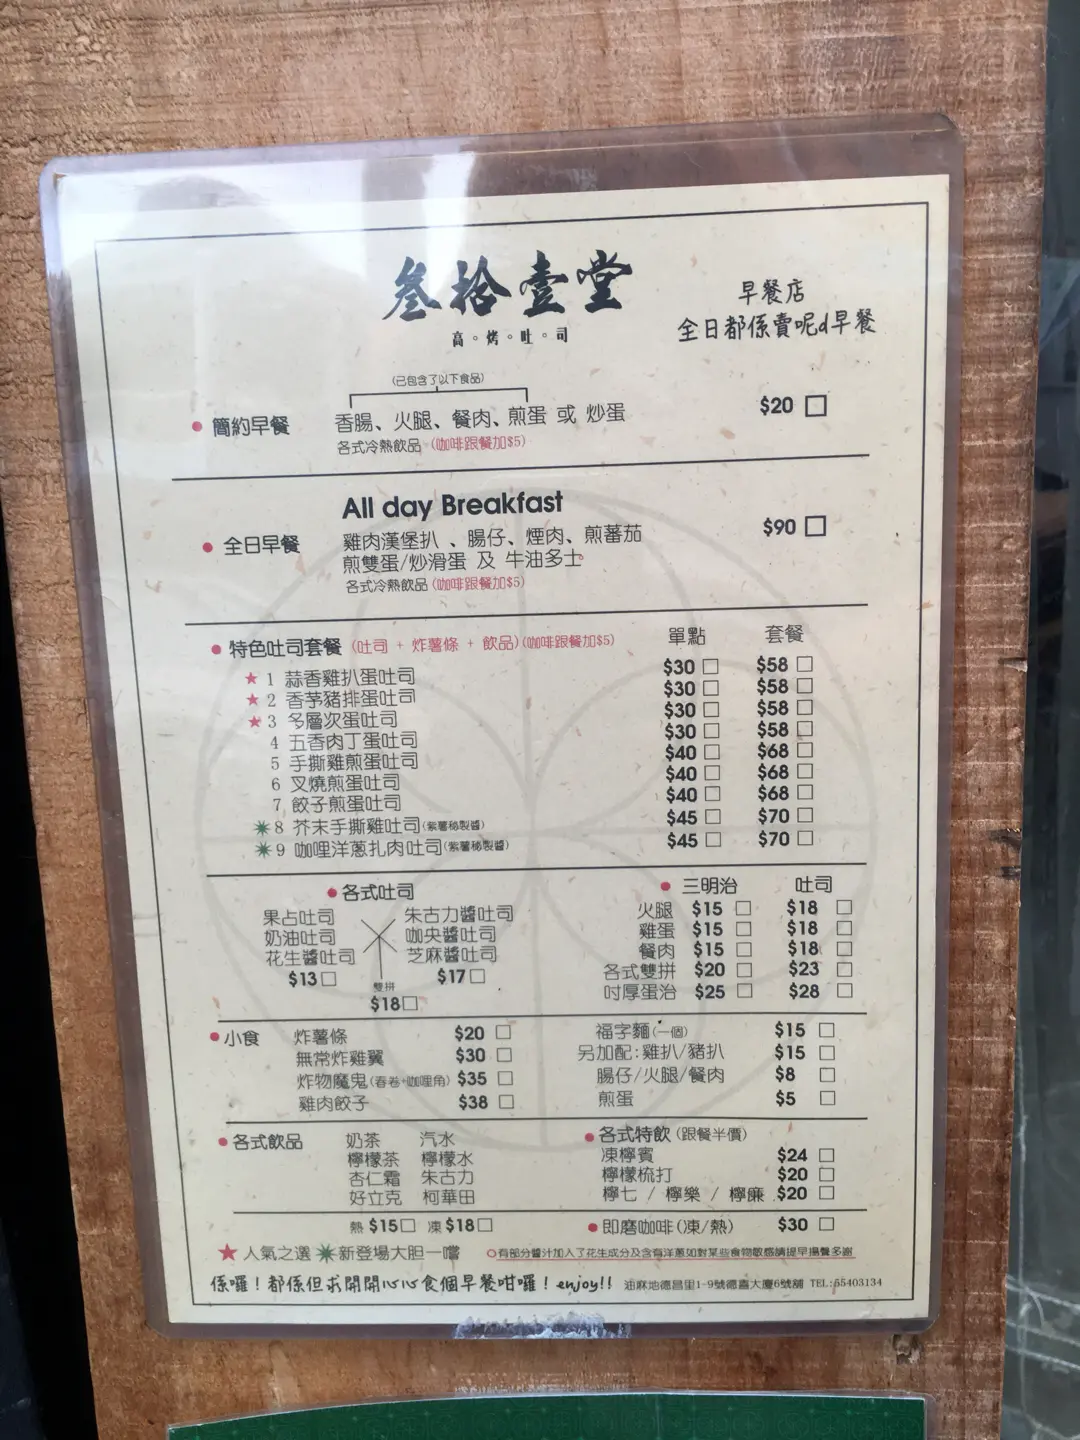 叁拾壹堂
高。烤。吐。司
早餐店
全日都係賣呢d早餐
(已包含了以下食品)
簡約早餐 香腸、火腿、餐肉、煎蛋 或 炒蛋 $20
各式冷熱飲品 (咖啡跟餐加$5)
All day Breakfast
全日早餐 雞肉漢堡扒 、腸仔、煙肉、煎蕃茄 $90
煎雙蛋/炒滑蛋 及 牛油多士
各式冷熱飲品 (咖啡跟餐加$5)
特色吐司套餐 (吐司 + 炸薯條 + 飲品)(咖啡跟餐加$5) 單點 套餐
★ 1 蒜香雞扒蛋吐司 $30 $58
★ 2 香茅豬排蛋吐司 $30 $58
★ 3 多層次蛋吐司 $30 $58
4 五香肉丁蛋吐司 $30 $58
5 手撕雞煎蛋吐司 $40 $68
6 叉燒煎蛋吐司 $40 $68
7 餃子煎蛋吐司 $40 $68
8 芥末手撕雞吐司(紫薯秘製醬) $45 $70
9 咖哩洋蔥扎肉吐司(紫薯秘製醬) $45 $70
各式吐司
果占吐司 朱古力醬吐司
奶油吐司 咖央醬吐司
花生醬吐司 芝麻醬吐司
$13 $17
雙拼
$18
三明治 吐司
火腿 $15 $18
雞蛋 $15 $18
餐肉 $15 $18
各式雙拼 $20 $23
吋厚蛋治 $25 $28
小食 炸薯條 $20
無常炸雞翼 $30
炸物魔鬼(春卷+咖哩角) $35
雞肉餃子 $38
福字麵(一個) $15
另加配:雞扒/豬扒 $15
腸仔/火腿/餐肉 $8
煎蛋 $5
各式飲品 奶茶 汽水
檸檬茶 檸檬水
杏仁霜 朱古力
好立克 柯華田
熱 $15 凍 $18
各式特飲 (跟餐半價)
凍檸賓 $24
檸檬梳打 $20
檸七 / 檸樂 / 檸廉 $20
即磨咖啡(凍/熱) $30
★ 人氣之選 新登場大胆一嚐 ○有部分醬汁加入了花生成分及含有洋蔥如對某些食物敏感請提早揚聲多謝
係囉！都係但求開開心心食個早餐咁囉！enjoy!! 油麻地德昌里1-9號德富大廈6號舖 TEL:55403134